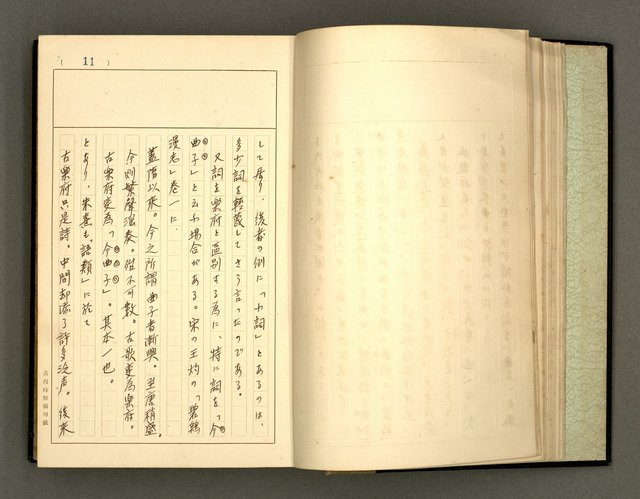 ( 11 )
して居り、後者の例に「小詞」とあるのは、
多少詞を軽蔑してさう言つたのである。
又詞を楽府と区別する為に、特に詞を「今
曲子」と云ふ場合がある。宋の王灼の「碧鶏
漫志」巻一に、
蓋隋以来。今之所謂曲子者漸興。至唐稍盛。
今則繁聲淫奏。殆不可数。古歌変為楽府。
古楽府変為「今曲子」。其本一也。
とあり、朱熹も「語類」に於て
古楽府只是詩。中間却添了許多泛声。後来